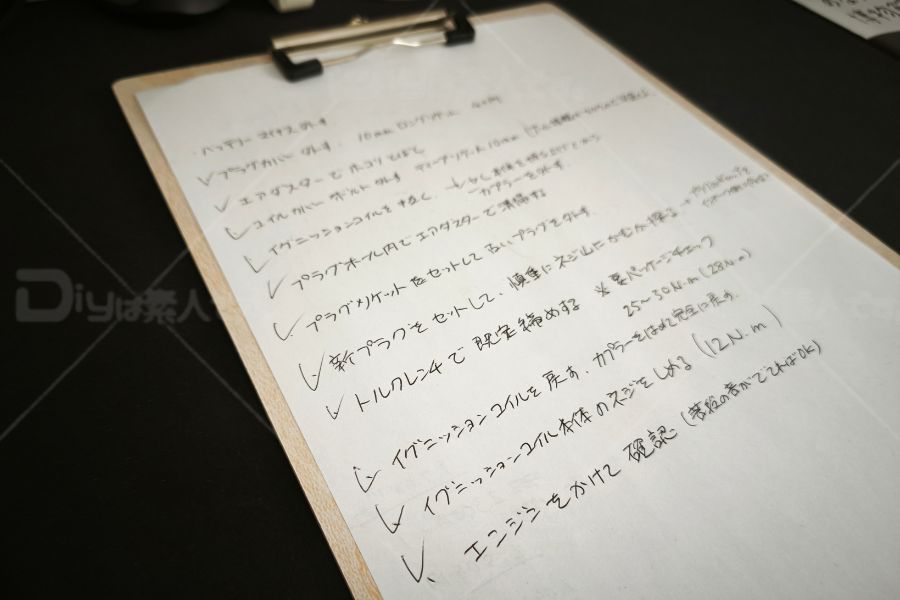 バッテリー マイナス 外す
プラグカバー 外す. 10mm ロング
エアダスターで ホコリとばし
コイルカバー ボルト外す ディープソケット10mm
イグニッションコイルをぬく. カプラーを外す.
プラグホール内でエアダスターで清掃する
プラグソケットをセットして古いプラグを外す.
新プラグをセットして. 慎重にネジ山にかむか探る
トルクレンチで 規定締めする ※要パッケージチェック
25〜30N・m (28N・m)
イグニッションコイルを戻す. カプラーをはめて完全に戻す.
イグニッションコイル本体のネジをしめる (12N.m)
エンジンをかけて確認 (普段の音がでてればOK)
Diyは素人